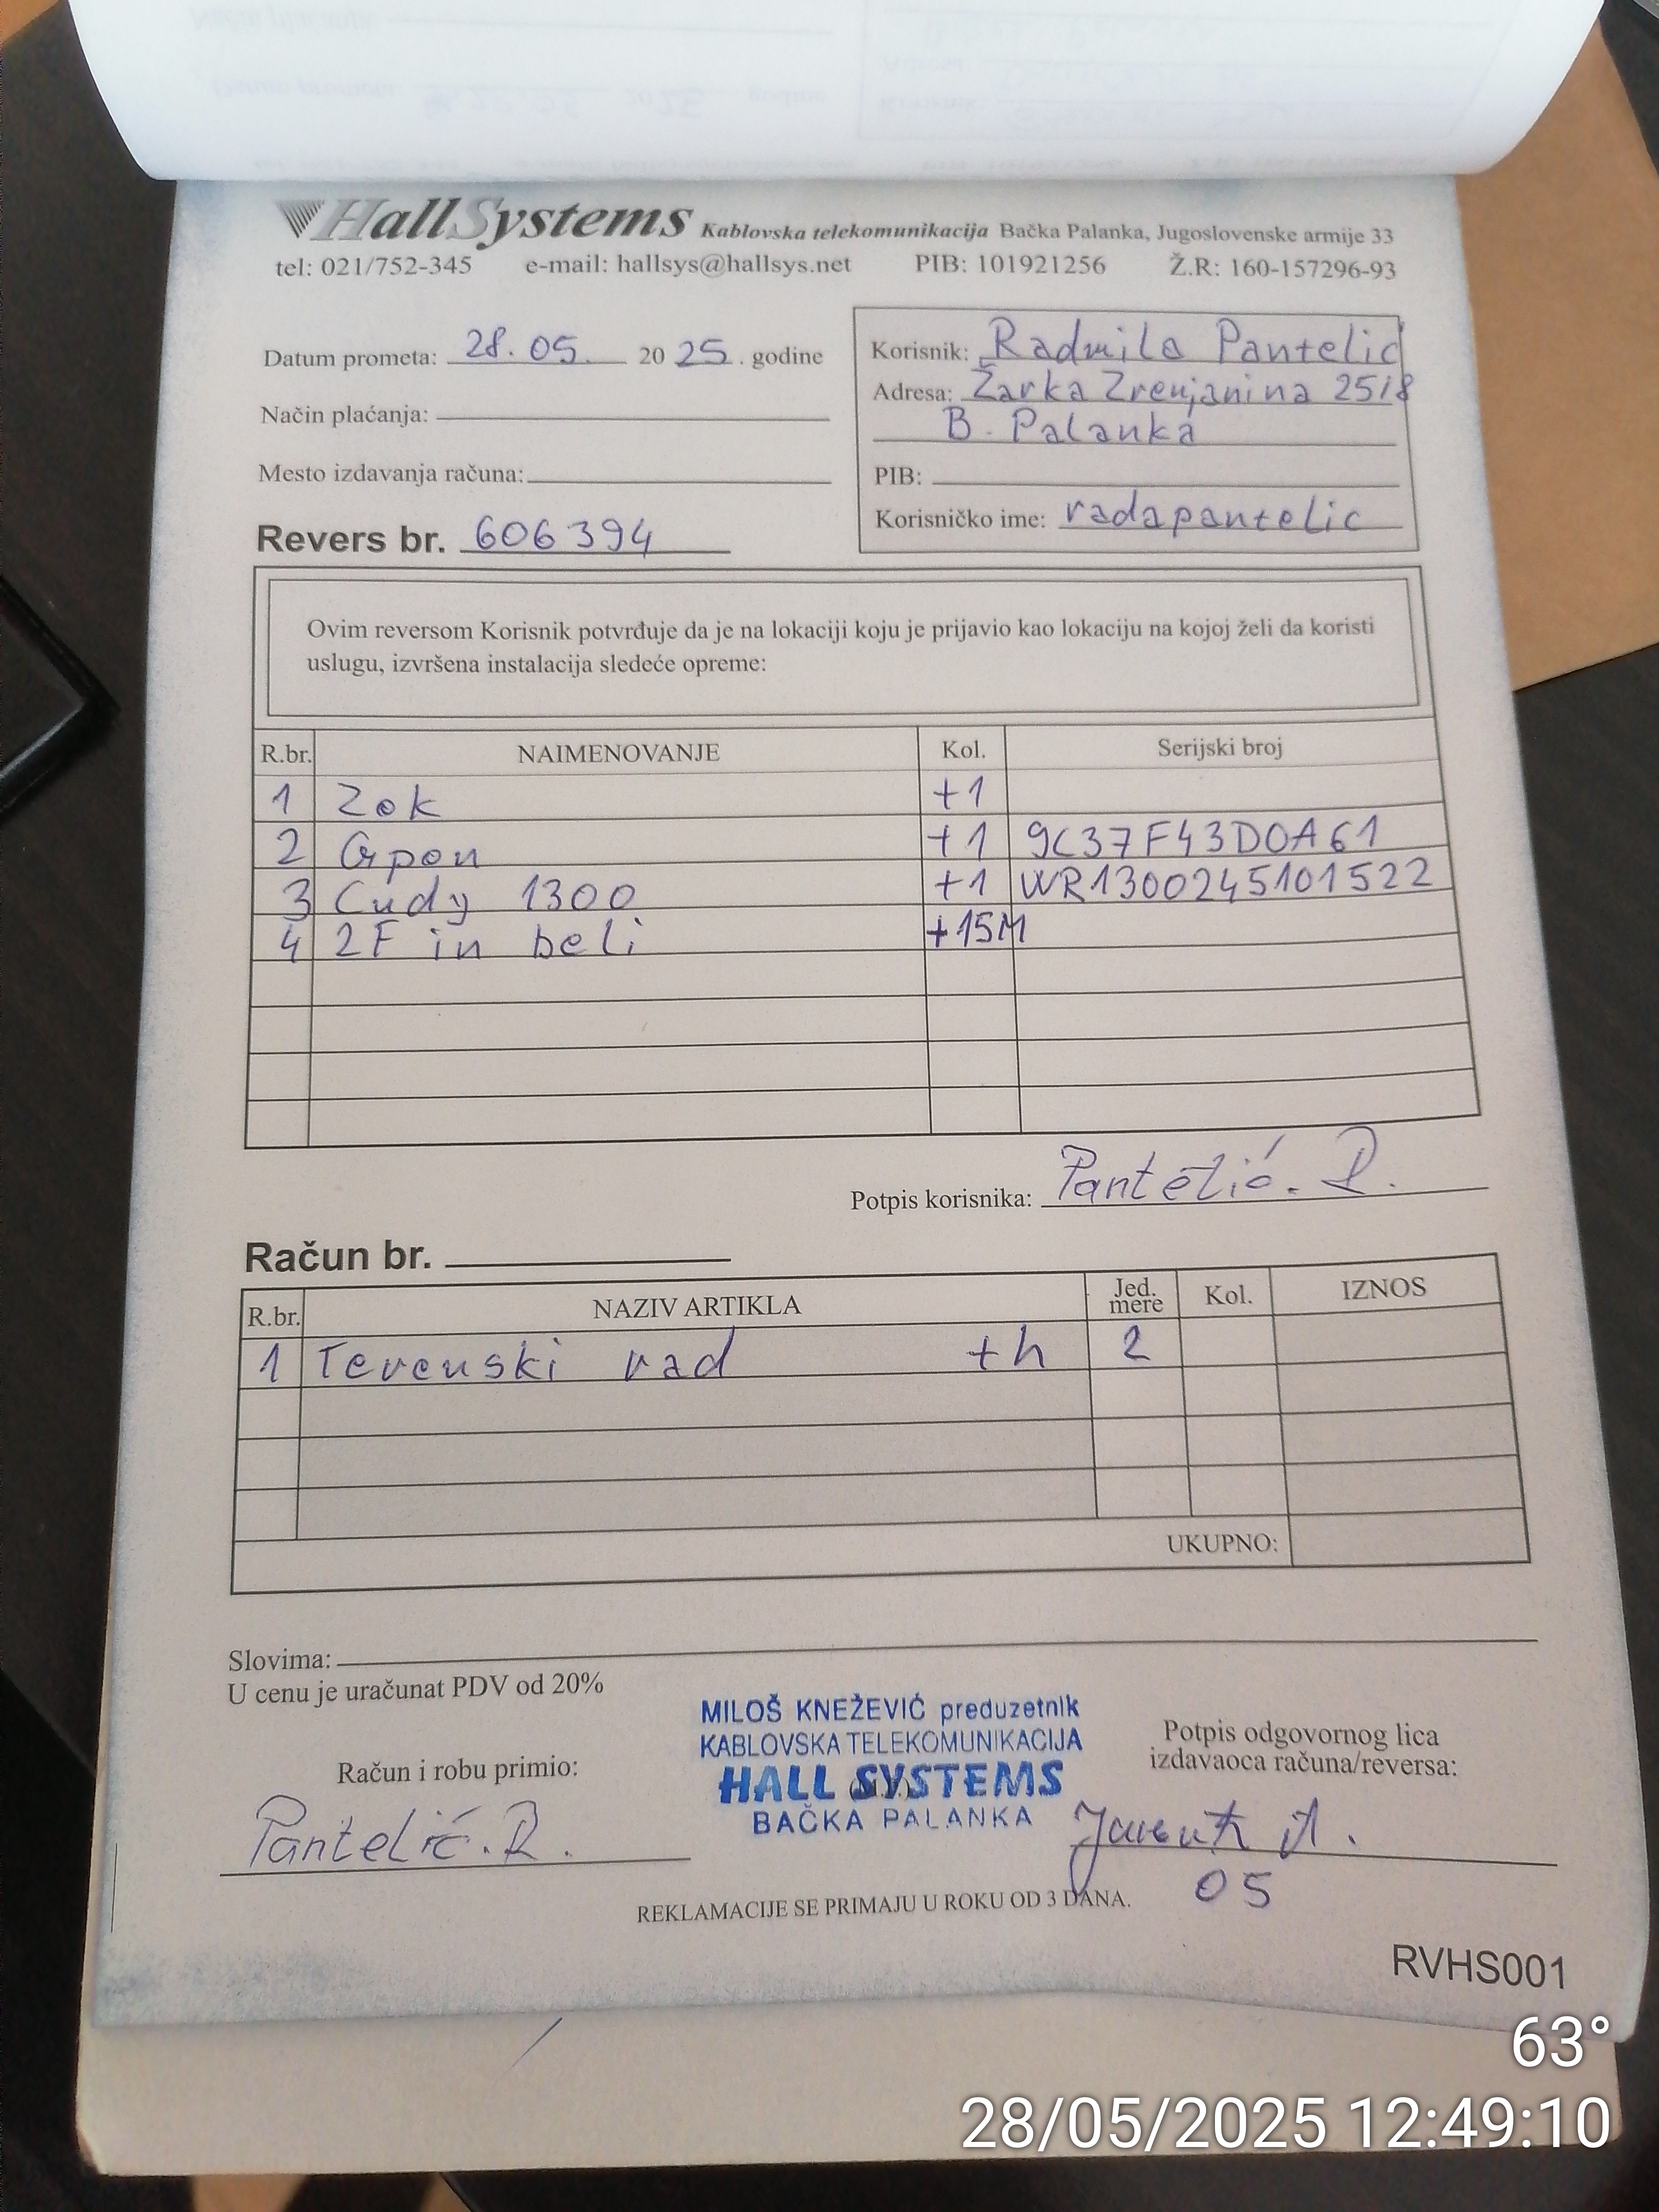 HallSystems Kablovska telekomunikacija Bačka Palanka, Jugoslovenske armije 33
tel: 021/752-345 e-mail: hallsys@hallsys.net PIB: 101921256 Ž.R: 160-157296-93
Datum prometa: 28.05. 2025. godine
Način plaćanja:
Mesto izdavanja računa:
Revers br. 606394
Korisnik: Radmila Pantelic
Adresa: Žarka Zrenjanina 25/8
B. Palanka
PIB:
Korisničko ime: radapantelic
Ovim reversom Korisnik potvrđuje da je na lokaciji koju je prijavio kao lokaciju na kojoj želi da koristi
uslugu, izvršena instalacija sledeće opreme:
R.br. NAIMENOVANJE Kol. Serijski broj
1 Zok +1
2 Gpon +1 9C37F43D0A61
3 Cudy 1300 +1 WR1300245101522
4 2F in beli +15M
Potpis korisnika: Pantelić. R.
Račun br.
R.br. NAZIV ARTIKLA Jed. mere Kol. IZNOS
1 Terenski rad th 2
UKUPNO:
Slovima:
U cenu je uračunat PDV od 20%
MILOŠ KNEŽEVIĆ preduzetnik
KABLOVSKA TELEKOMUNIKACIJA
HALL SYSTEMS
BAČKA PALANKA
Račun i robu primio:
Pantelić. R.
Potpis odgovornog lica
izdavaoca računa/reversa:
05
REKLAMACIJE SE PRIMAJU U ROKU OD 3 DANA.
RVHS001
63°
28/05/2025 12:49:10